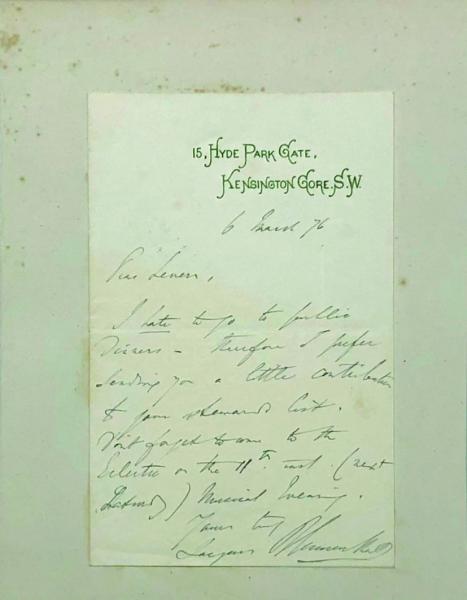 15, HYDE PARK GATE,
KENSINGTON GORE. S.W.
6 March 76
Dear
I hate to go to public
Dinners – therefore I prefer
sending you a little contribution
to your steward's list.
Don't forget to come to the
Eclectic on the 11th. inst. (next
Saturday) Musical Evening.
Yours truly
Jacques Blumenthal